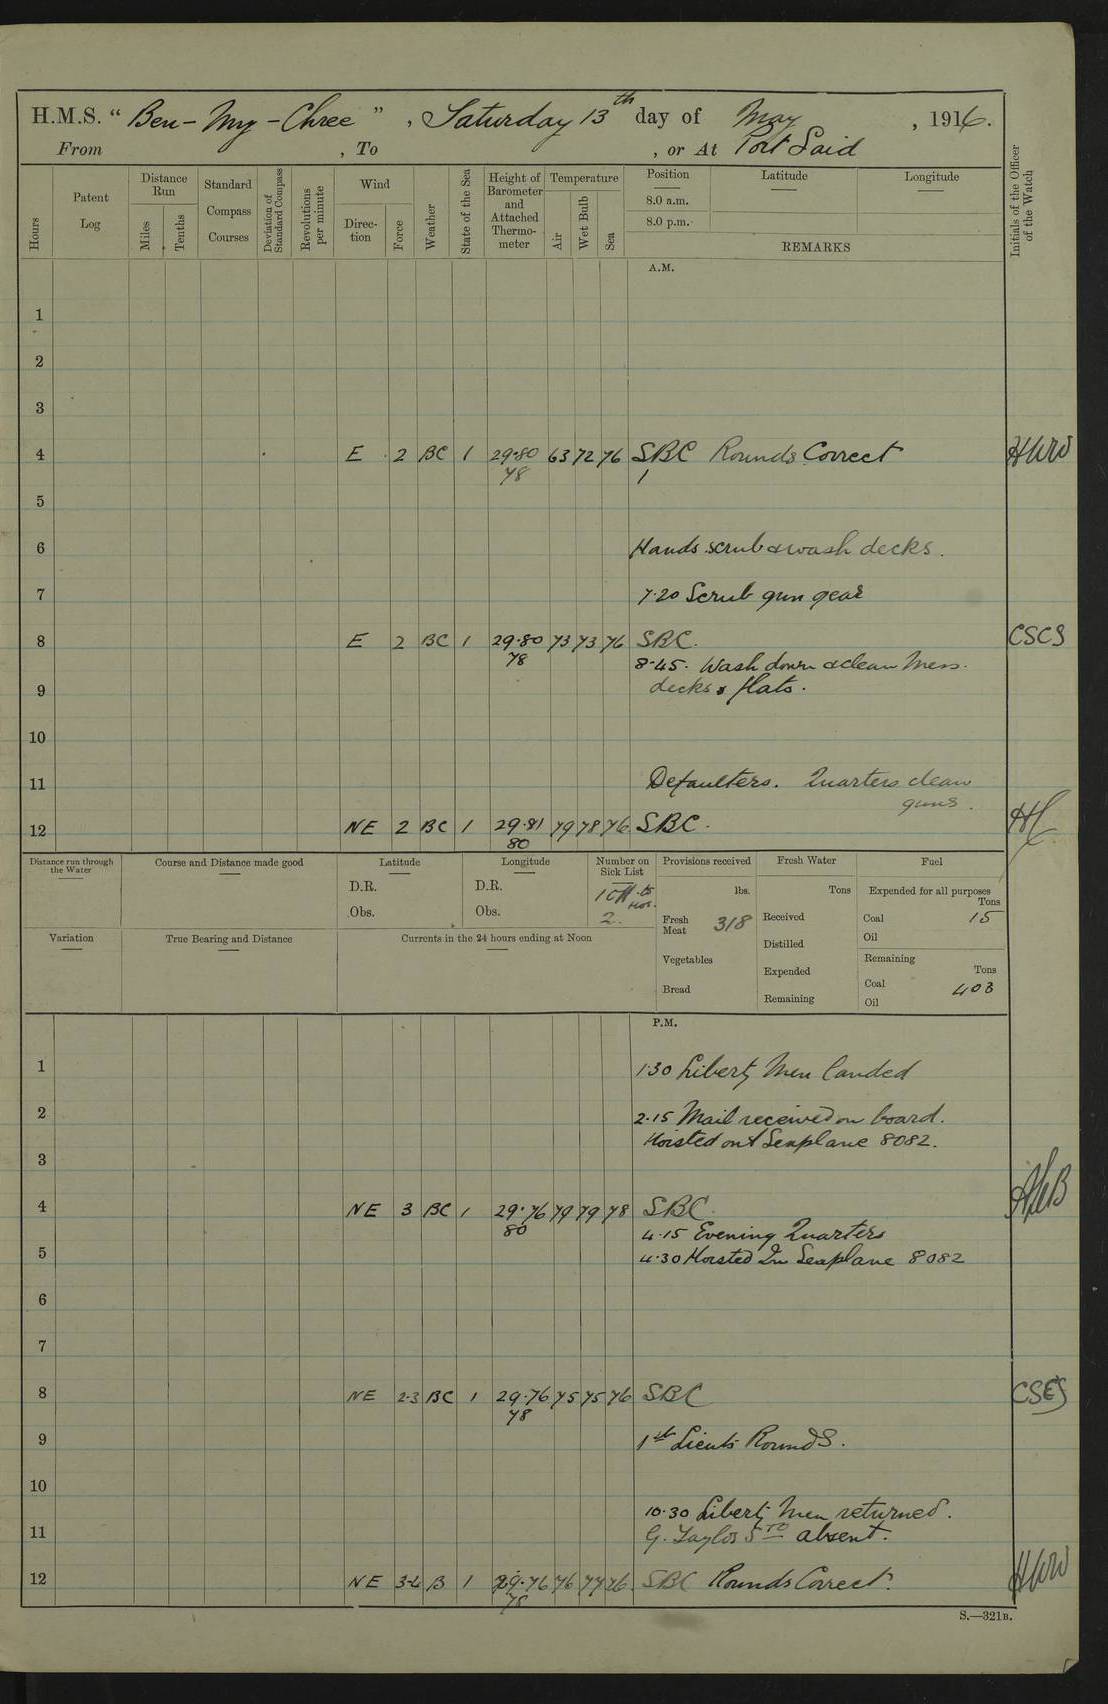 H.M.S. “ Ben-My-Chree ” , Saturday 13th day of May , 1916.
From , To , or At Port Said
Hours
Patent Log
Distance Run
Miles
Tenths
Standard Compass Courses
Deviation of Standard Compass
Revolutions per minute
Wind
Direc-tion
Force
Weather
State of the Sea
Height of Barometer and Attached Thermo-meter
Temperature
Air
Wet Bulb
Sea
Position Latitude Longitude
8.0 a.m.
8.0 p.m.
REMARKS
Initials of the Officer of the Watch
A.M.
1
2
3
4 E 2 BC 1 29.80 63 72 76 SBC Rounds Correct HWW
78 1
5
6 Hands scrub & wash decks.
7 7.20 Scrub gun gear
8 E 2 BC 1 29.80 73 73 76 SBC. CSCS
78 8.45. Wash down & clean Mess
9 decks & flats.
10
11 Defaulters. Quarters clean
guns.
12 NE 2 BC 1 29.81 79 78 76 SBC.
80
Distance run through the Water
Course and Distance made good
Latitude
D.R.
Obs.
Longitude
D.R.
Obs.
Number on Sick List
2.
Provisions received
lbs.
Fresh Meat 318
Vegetables
Bread
Fresh Water
Tons
Received
Distilled
Expended
Remaining
Fuel
Expended for all purposes
Tons
Coal 15
Oil
Remaining
Tons
Coal 403
Oil
Variation
True Bearing and Distance
Currents in the 24 hours ending at Noon
P.M.
1 1.30 Liberty Men landed
2 2.15 Mail received on board.
Hoisted out Seaplane 8082.
3
4 NE 3 BC 1 29.76 79 79 78 SBC.
80 4.15 Evening Quarters
5 4.30 Hoisted In Seaplane 8082
6
7
8 NE 2-3 BC 1 29.76 75 75 76 SBC CSES
78
9 1st Lieuts Rounds.
10
10.30 Liberty Men returned.
11 G. Taylor STO absent.
12 NE 3-4 B 1 29.76 76 77 76 SBC Rounds Correct. HWW
78
S.—321B.